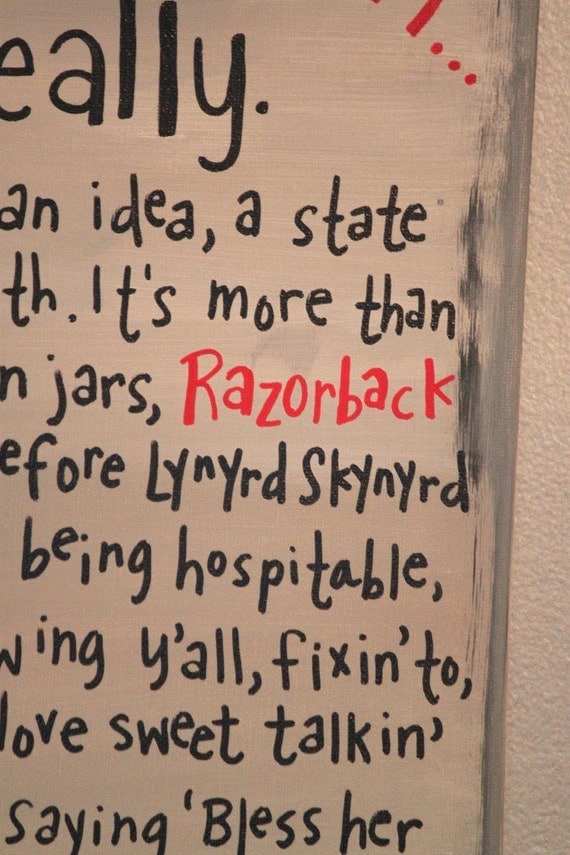 eally.
an idea, a state
th. It's more than
n jars, Razorback
efore Lynyrd Skynyrd
being hospitable,
wing y'all, fixin' to,
love sweet talkin'
saying 'Bless her